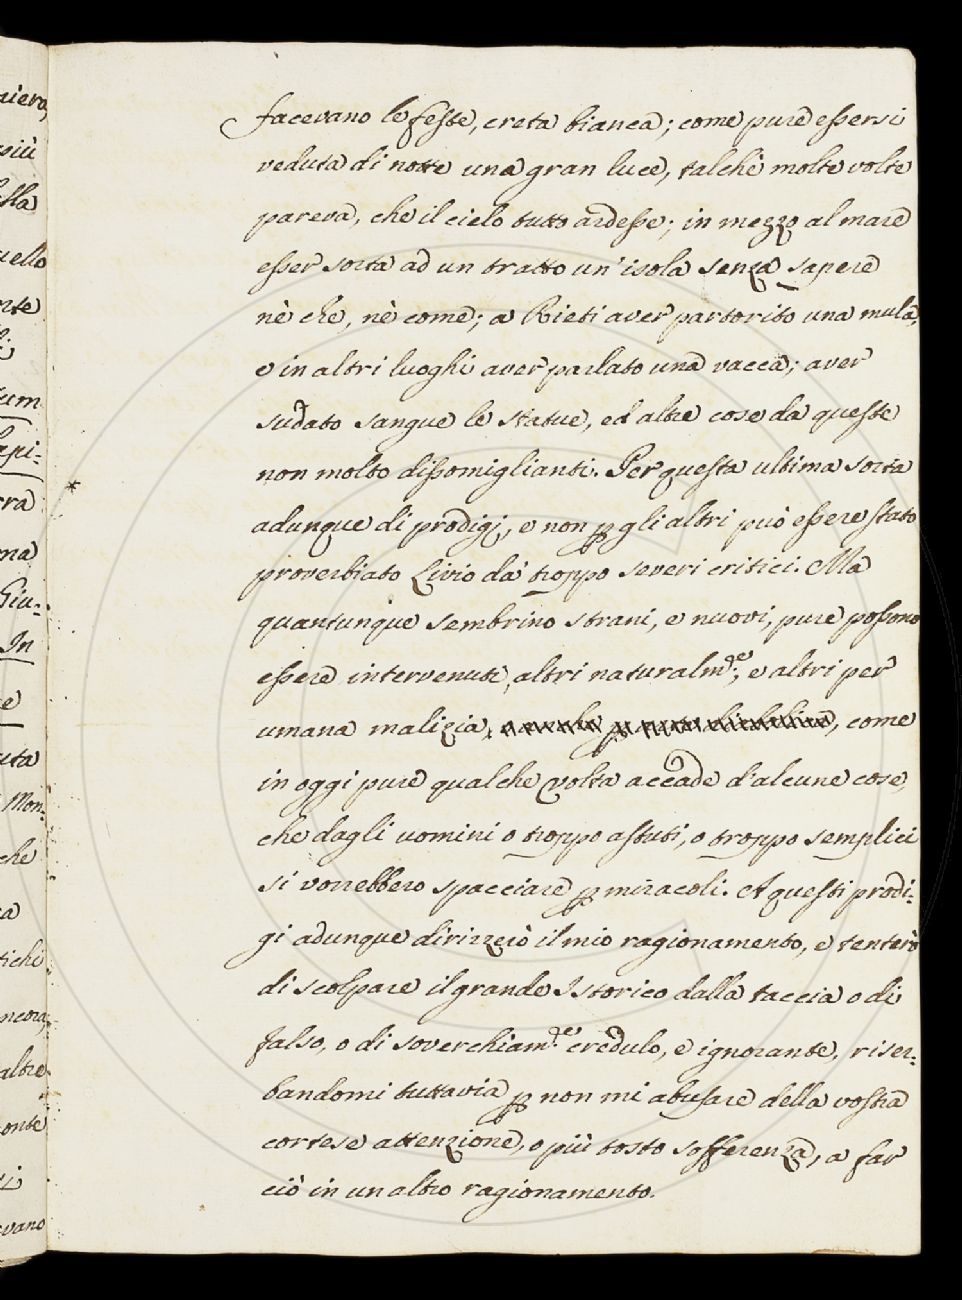 facevano le feste, creta bianca; come pure essersi
veduta di notte una gran luce, talchè molte volte
pareva, che il cielo tutto ardesse; in mezzo al mare
esser sorta ad un tratto un' isola senza sapere
nè che, nè come; a Rieti aver partorito una mula,
e in altri luoghi aver parlato una vacca; aver
sudato sangue le statue, ed altre cose da queste
non molto dissomiglianti. Per questa ultima sorta
*
adunque di prodigj, e non p gli altri può essere stato
proverbiato Livio da' troppo severi critici. Ma
quantunque sembrino strani, e nuovi, pure possono
essere intervenuti, altri naturalm.te, e altri per
umana malizia, come
in oggi pure qualche volta accade d'alcune cose,
che dagli uomini o troppo astuti, o troppo semplici
si vorrebbero spacciare p miracoli. A questi prodi:
gi adunque dirizzerò il mio ragionamento, e tenterò
di scolpare il grande Istorico dalla taccia o di
falso, o di soverchiam.te credulo, e ignorante, riser:
bandomi tuttavia p non mi abusare della vostra
cortese attenzione, o più tosto sofferenza, a far
ciò in un altro ragionamento.